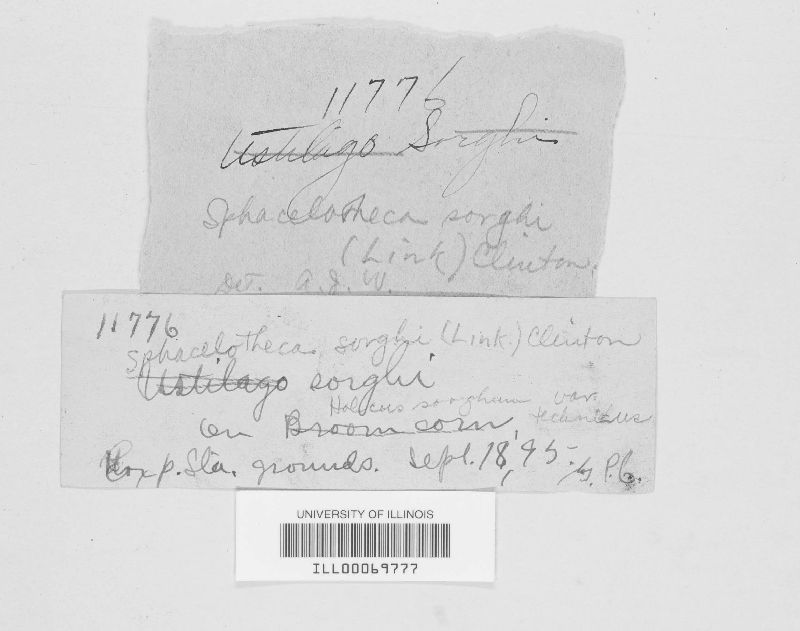 11776
Ustilago Sorghi
Sphacelotheca sorghi
(Link) Clinton.
Det. A.J.W.
11776
Sphacelotheca sorghi (Link.) Clinton
Ustilago sorghi
Holcus sorghum var.
on Broom corn technicus
Exp. Sta. grounds. Sept. 18, '95. G.P.C.
UNIVERSITY OF ILLINOIS
ILL00069777